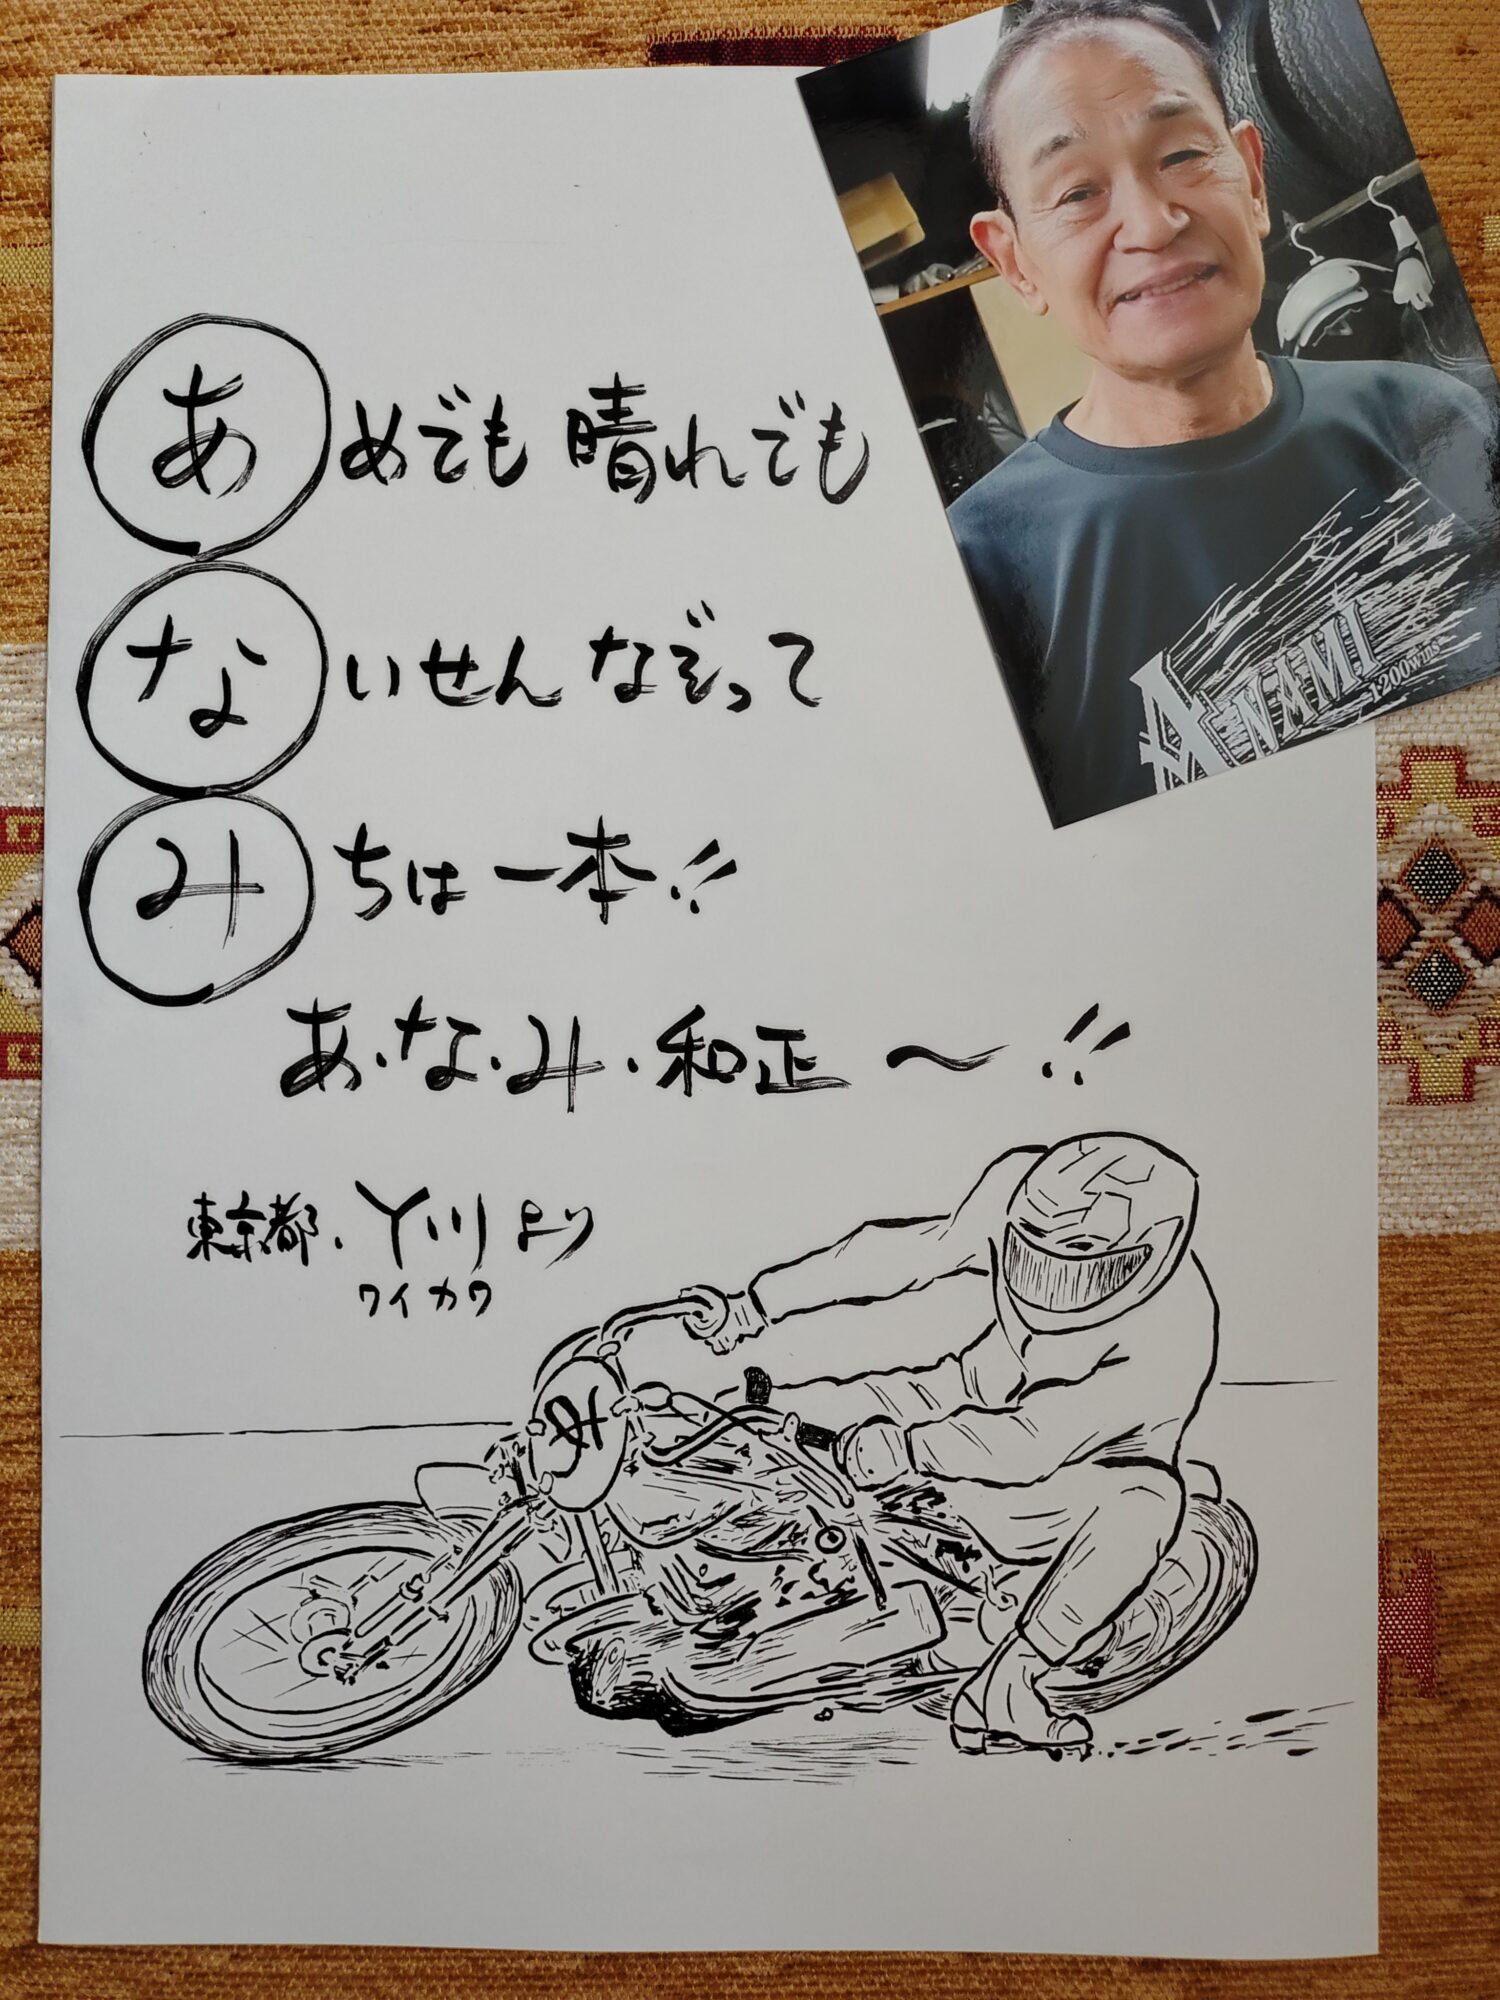 あめでも 晴れでも
ないせん なぞって
みちは 一本!!
あ・な・み・和正〜!!
東京都.Y川より
ワイカワ
み
ANAMI
1200wins